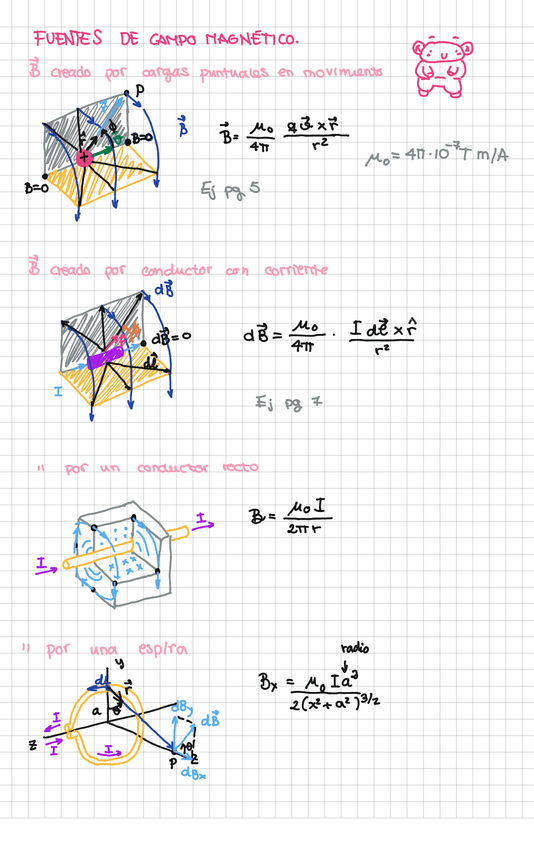 FUENTES DE CAMPO MAGNÉTICO.
B⃗ creado por cargas puntuales en movimiento
P
B⃗
B=0
B=0
B⃗ = μ₀/4π · q v⃗ x r̂ / r²
μ₀ = 4π·10⁻⁷ T m/A
Ej pg 5
B⃗ creado por conductor con corriente
dB⃗
dB⃗ = 0
dl⃗
I
dB⃗ = μ₀/4π · I dl⃗ x r̂ / r²
Ej pg 7
" por un conductor recto
I
I
B = μ₀ I / 2π r
" por una espira
radio
Bx = μ₀ I a² / 2(x² + a²)^3/2
y
dl
r⃗
a
θ
dBy
dB⃗
I
I
z
I
P
θ
dBx